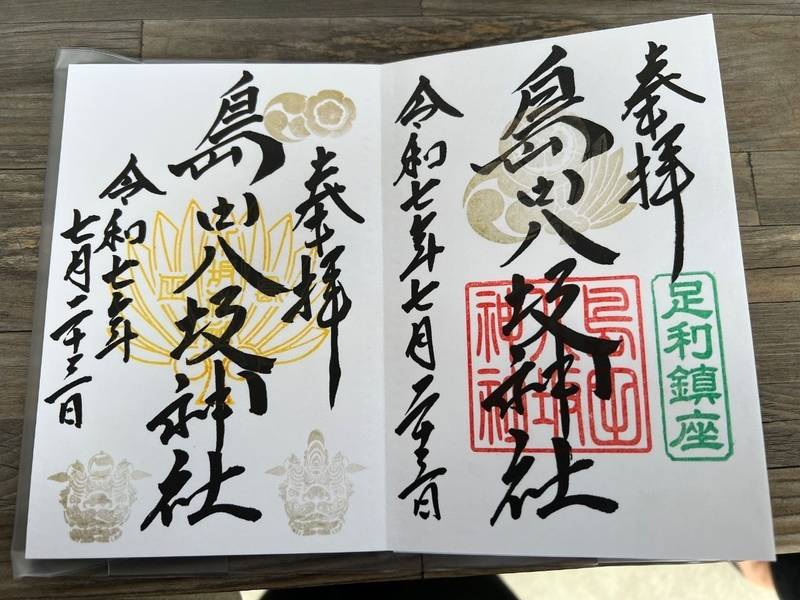 奉拝
足利鎮座
島田八坂神社
島田
八坂
神社
令和七年七月二十三日
奉拝
島田八坂神社
令和七年
七月二十三日